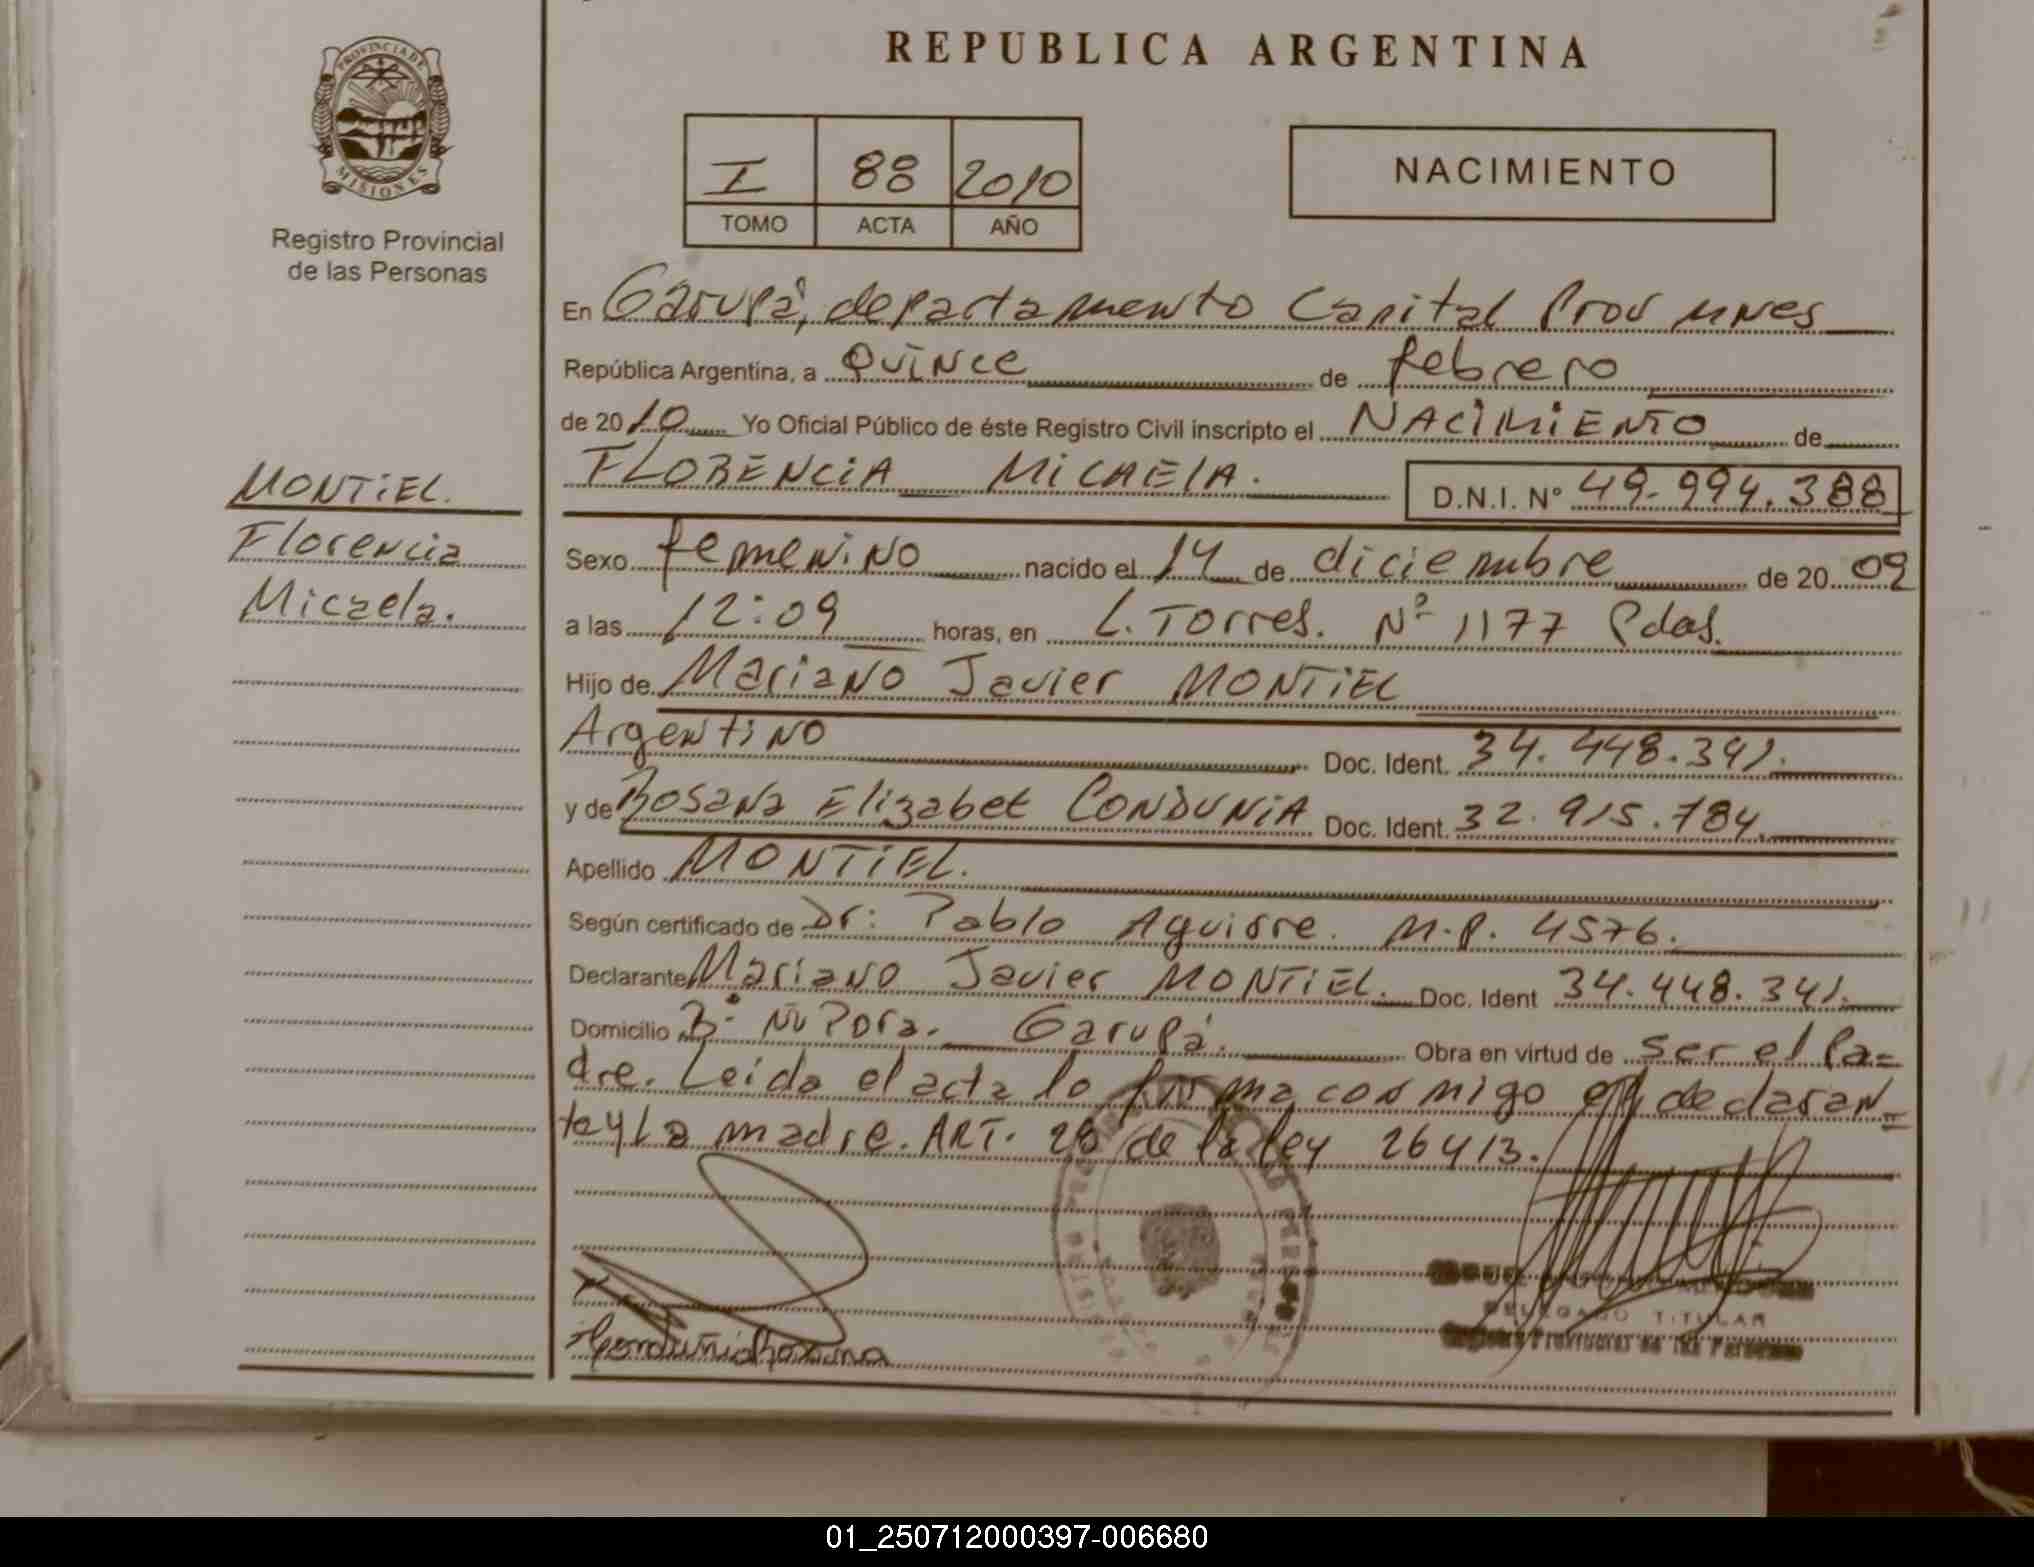 REPUBLICA ARGENTINA
PROVINCIA DE
MISIONES
Registro Provincial
de las Personas
I 88 2010
TOMO ACTA AÑO
NACIMIENTO
En Garupá, departamento Capital Prov Mnes
República Argentina, a Quince de febrero
de 2010 Yo Oficial Público de éste Registro Civil inscripto el NACIMIENTO de
FLORENCIA MICAELA. D.N.I. Nº 49.994.388
MONTIEL.
Florencia
Micaela.
Sexo femenino nacido el 14 de diciembre de 2009
a las 12:09 horas, en L. Torres. Nº 1177 Pdas.
Hijo de Mariano Javier MONTIEL
Argentino Doc. Ident. 34.448.341.
y de Rosana Elizabet CONDUNIA Doc. Ident. 32.915.784
Apellido MONTIEL.
Según certificado de Dr: Pablo Aguirre. M.P. 4576.
Declarante Mariano Javier MONTIEL. Doc. Ident 34.448.341.
Domicilio Bº Ñu Pora. Garupá. Obra en virtud de ser el Pa=
dre. Leida el acta lo firma conmigo el declaran=
te y La madre. ART. 28 de la ley 26413.
DELEGADO TITULAR
Registro Provincial de las Personas
01_250712000397-006680